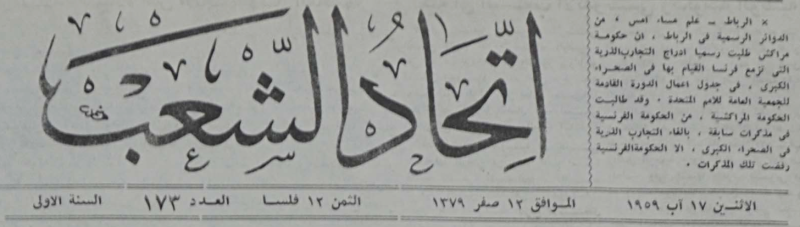 × الرباط ــ علم مساء امس ، من
الدوائر الرسمية في الرباط ، ان حكومة
مراكش طلبت رسميا ادراج التجارب الذرية
التي تزمع فرنسا القيام بها في الصحراء
الكبرى ، في جدول اعمال الدورة القادمة
للجمعية العامة للامم المتحدة ، وقد طالبت
الحكومة المراكشية ، من الحكومة الفرنسية
في مذكرات سابقة ، بالغاء التجارب الذرية
في الصحراء الكبرى ، الا الحكومة الفرنسية
رفضت تلك المذكرات .
اتحاد الشعب
الاثنين ١٧ آب ١٩٥٩ الموافق ١٢ صفر ١٣٧٩ الثمن ١٢ فلسا العدد ١٧٣ السنة الاولى